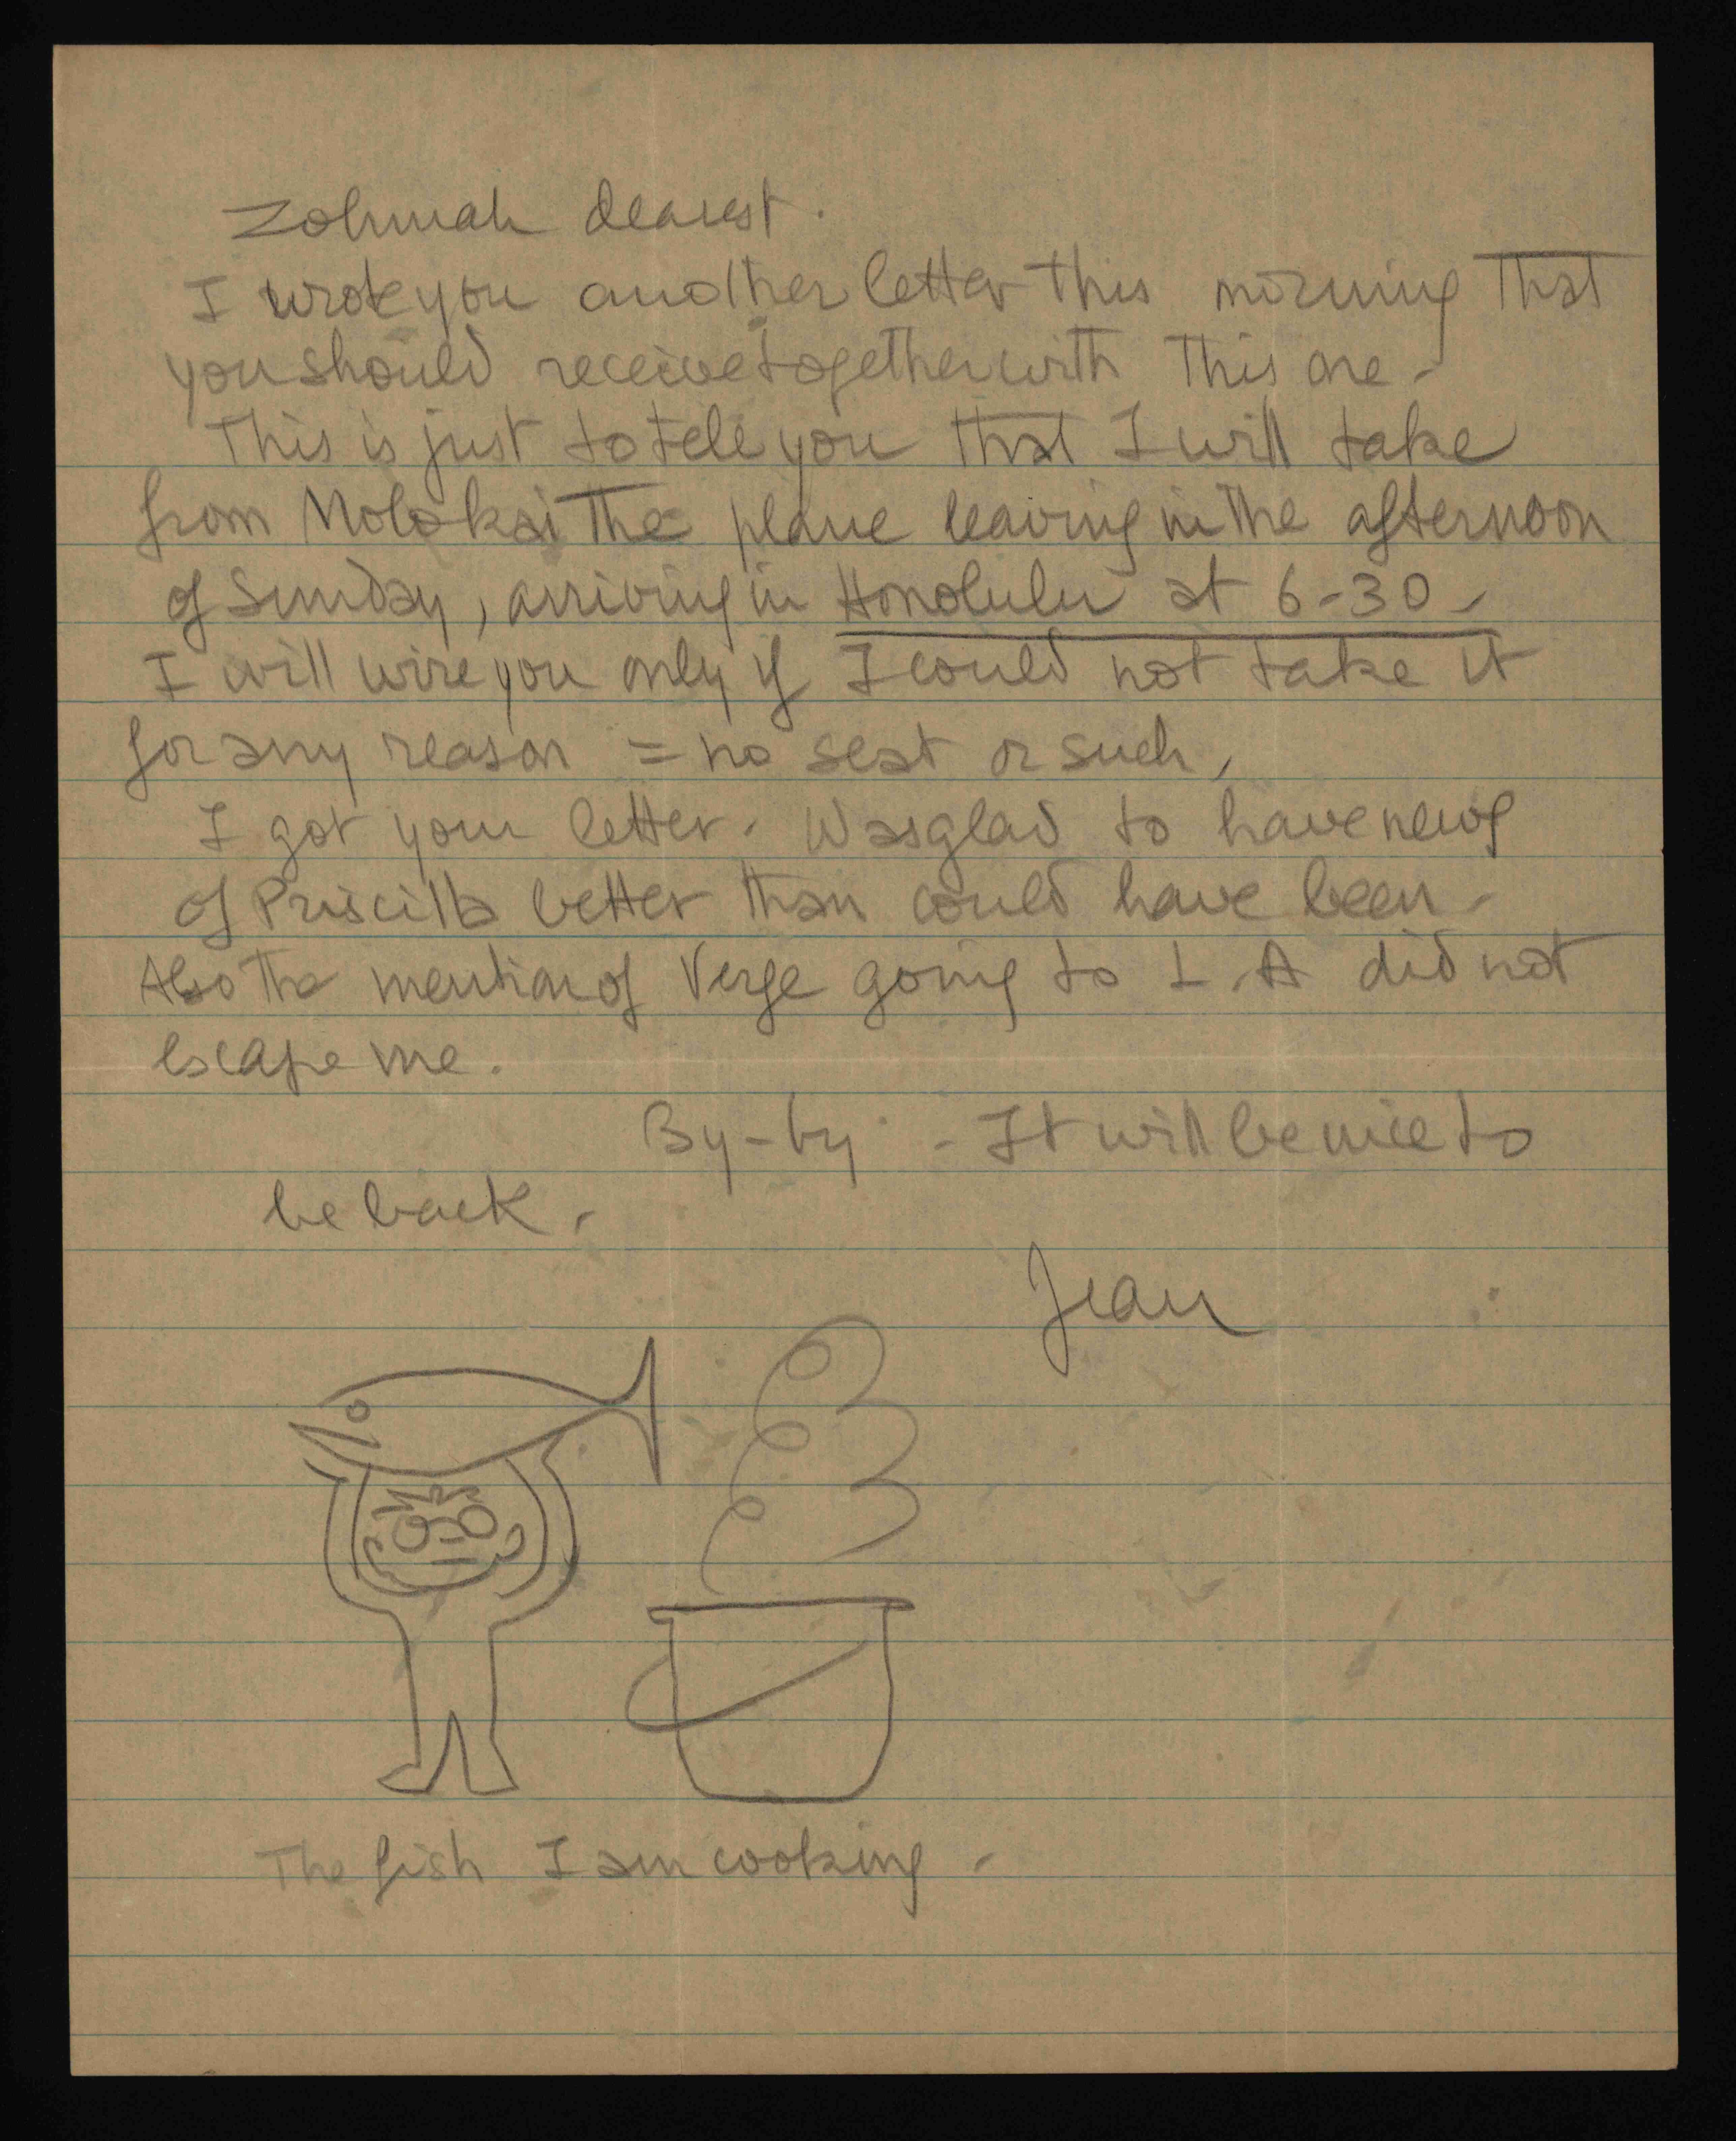 Zohmah dearest.
I wrote you another letter this morning that
you should receive together with this one -
This is just to tell you that I will take
from Molokai the plane leaving in the afternoon
of Sunday, arriving in Honolulu at 6-30 -
I will wire you only if I could not take it
for any reason = no seat or such,
I got your letter. Was glad to have news
of Priscilla better than could have been -
Also the mention of Verge going to L.A did not
escape me.
By-by - It will be nice to
be back.
Jean
The fish I am cooking -